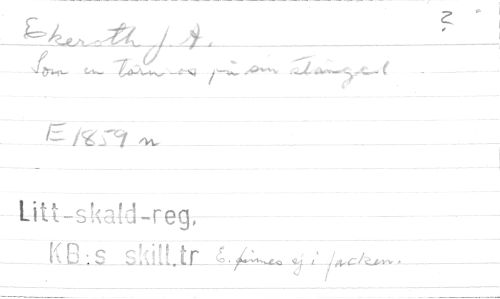 ?
Ekeroth J. A.
Som en törnros på sin stängel
E 1859 n
Litt-skald-reg.
KB:s skill.tr E. finnes ej i facken.